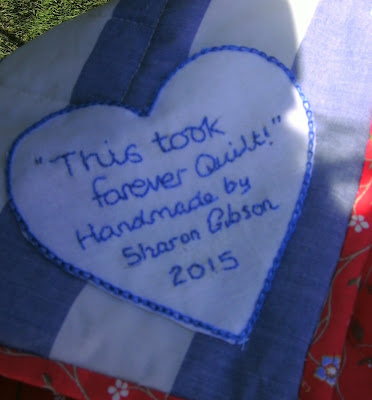 "This took
forever Quilt!"
Handmade by
Sharon Gibson
2015